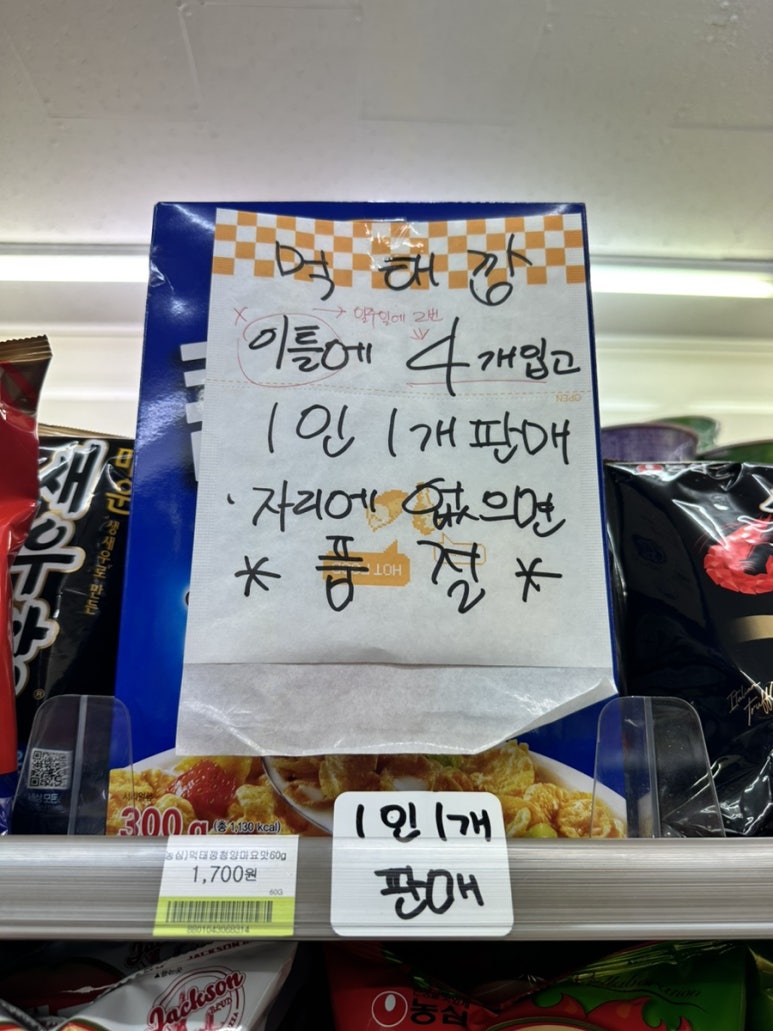 먹해깡
X → 일주일에 2번
이틀에 4개입고
1인 1개 판매
· 자리에 없으면
* 품절 *
OPEN
HOT
새우깡
매운
생새우로 만든
300 g (총 1,130 kcal)
농심)먹태깡청양마요맛60g
1,700원
60G
8801043068314
1인 1개
판매
Italian
Truffle
Jackson
농심